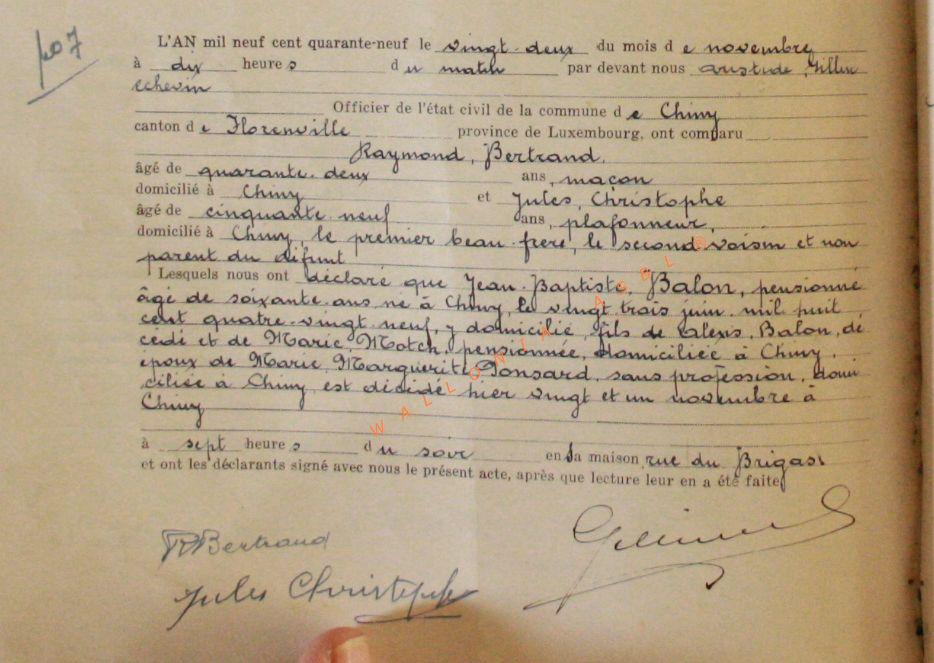 No 7
L'AN mil neuf cent quarante-neuf le vingt-deux du mois d e novembre
à dix heure s d u matin par devant nous Aristide, Gillen
echevin
Officier de l'état civil de la commune d e Chiny
canton d e Florenville province de Luxembourg, ont comparu
Raymond, Bertrand,
âgé de quarante-deux ans, maçon
domicilié à Chiny et Jules, Christophe
âgé de cinquante-neuf ans, plafonneur,
domicilié à Chiny, le premier beau-frère, le second voisin et non
parent du défunt
Lesquels nous ont déclaré que Jean-Baptiste, Balon, pensionné
âgé de soixante ans né à Chiny, le vingt-trois juin mil huit
cent quatre-vingt-neuf, y domicilié, fils de Alexis, Balon, dé
cédé et de Marie, Motch, pensionnée, domiciliée à Chiny,
époux de Marie, Marguerite Ponsard, sans profession, domi
ciliée à Chiny est décédé hier vingt et un novembre à
Chiny
à sept heure s d u soir en sa maison rue du Brigas.
et ont les déclarants signé avec nous le présent acte, après que lecture leur en a été faite,
R Bertrand
Jules Christophe
WALLONIA ASBL